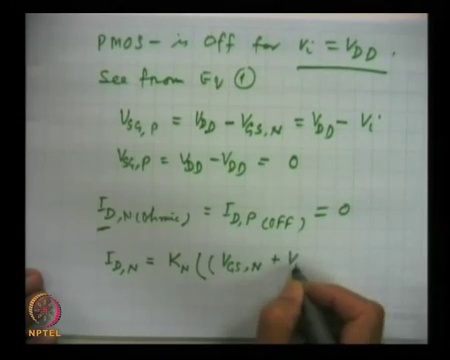 PMOS - is Off for Vi = VDD.
See from EV ①
VSG,P = VDD - VGS,N = VDD - Vi
VSG,P = VDD - VDD = 0
ID,N(Ohmic) = ID,P(OFF) = 0
ID,N = KN((VGS,N + V
NPTEL